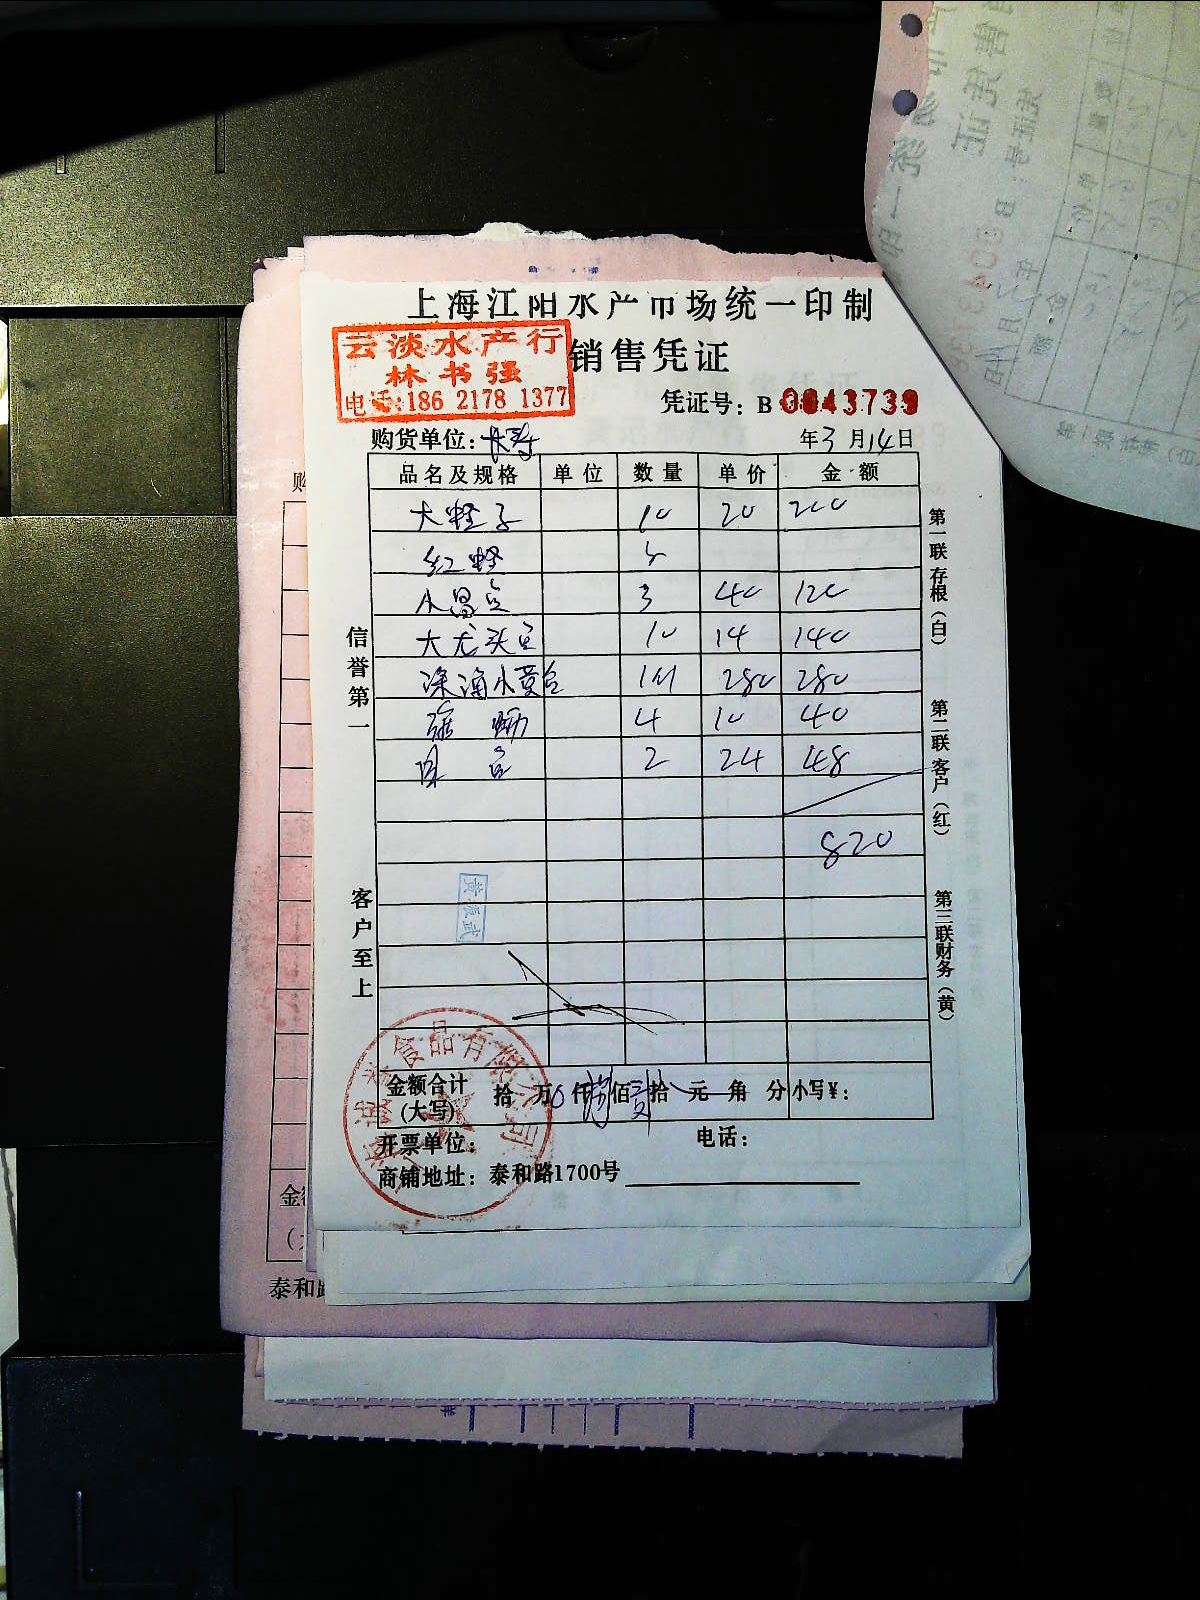 上海江阳水产市场统一印制
云淡水产行
林书强
电话:186 2178 1377
销售凭证
凭证号: B 0043739
购货单位: 长寿
年3月14日
品名及规格 单位 数量 单价 金额
大蛏子 10 20 200
红蛏 5
小昌鱼 3 40 120
大龙头鱼 10 14 140
深海小黄鱼 1件 280 280
4 10 40
鱼 2 24 48
820
信誉第一
客户至上
第一联 存根(白)
第二联 客户(红)
第三联 财务(黄)
食品有限公司
金额合计(大写) 拾 万 仟 捌佰贰拾 元 角 分 小写¥:
开票单位: 电话:
商铺地址: 泰和路1700号
购
泰和路